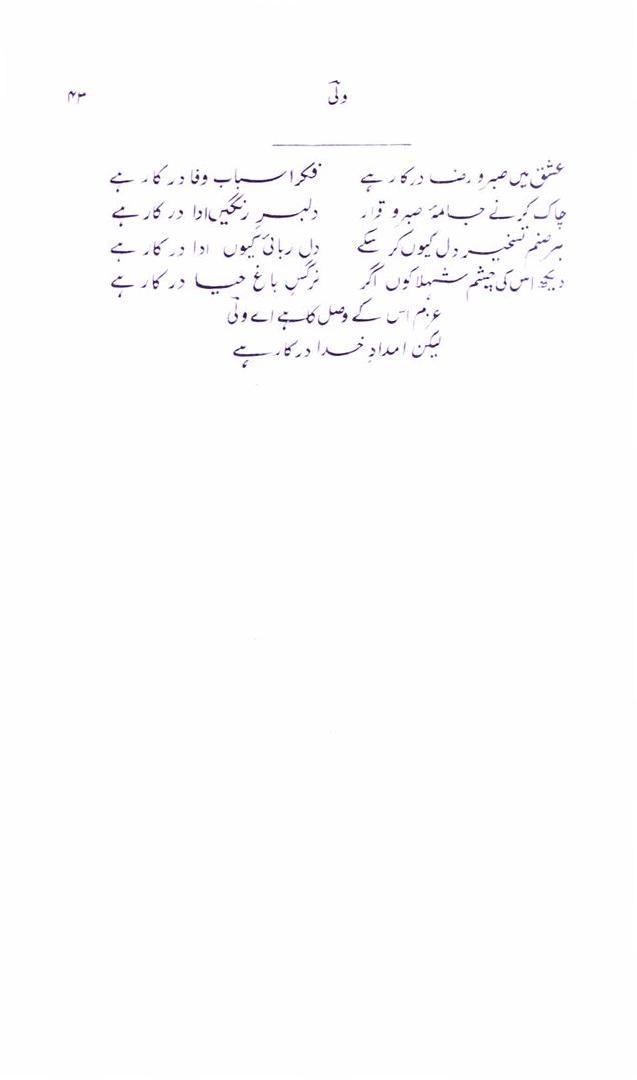 ولیؔ ۴۳
عشق میں صبر و رضا درکار ہے فکر اسبابِ وفا درکار ہے
چاک کرنے جامۂ صبر و قرار دلبرِ رنگیں ادا درکار ہے
ہر صنم تسخیرِ دل کیوں کر سکے دل ربائی کوں ادا درکار ہے
دیکھ اس کی چشم شہلا کوں اگر نرگسِ باغِ حیا درکار ہے
عزم اس کے وصل کا ہے اے ولیؔ
لیکن امدادِ خدا درکار ہے